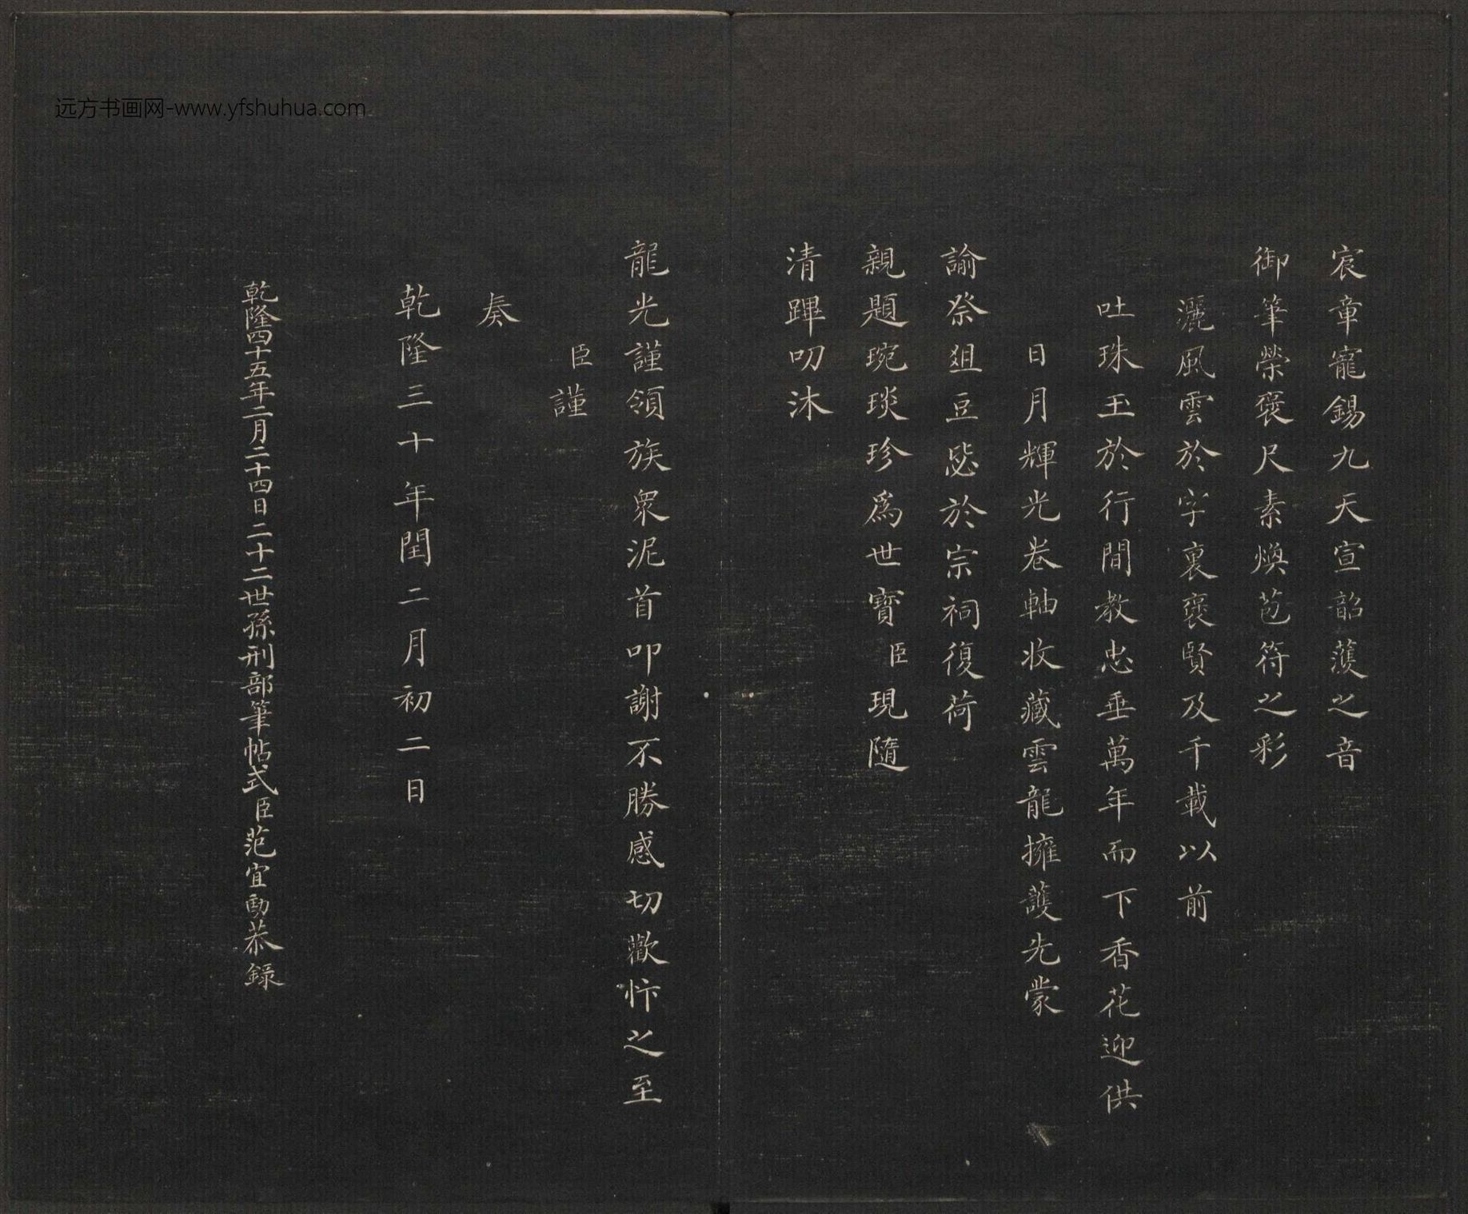 远方书画网-www.yfshuhua.com
宸章寵錫九天宣韶頀之音
御筆榮褒尺素煥苞符之彩
灑風雲於字裏褒賢及千載以前
吐珠玉於行間教忠垂萬年而下香花迎供
日月輝光卷軸收藏雲龍擁護先蒙
諭祭俎豆毖於宗祠復荷
親題琬琰珍爲世寶臣現隨
清蹕叨沐
龍光謹領族衆泥首叩謝不勝感切歡忭之至
臣謹
奏
乾隆三十年閏二月初二日
乾隆四十五年二月二十四日二十二世孫刑部筆帖式臣范宜勳恭錄